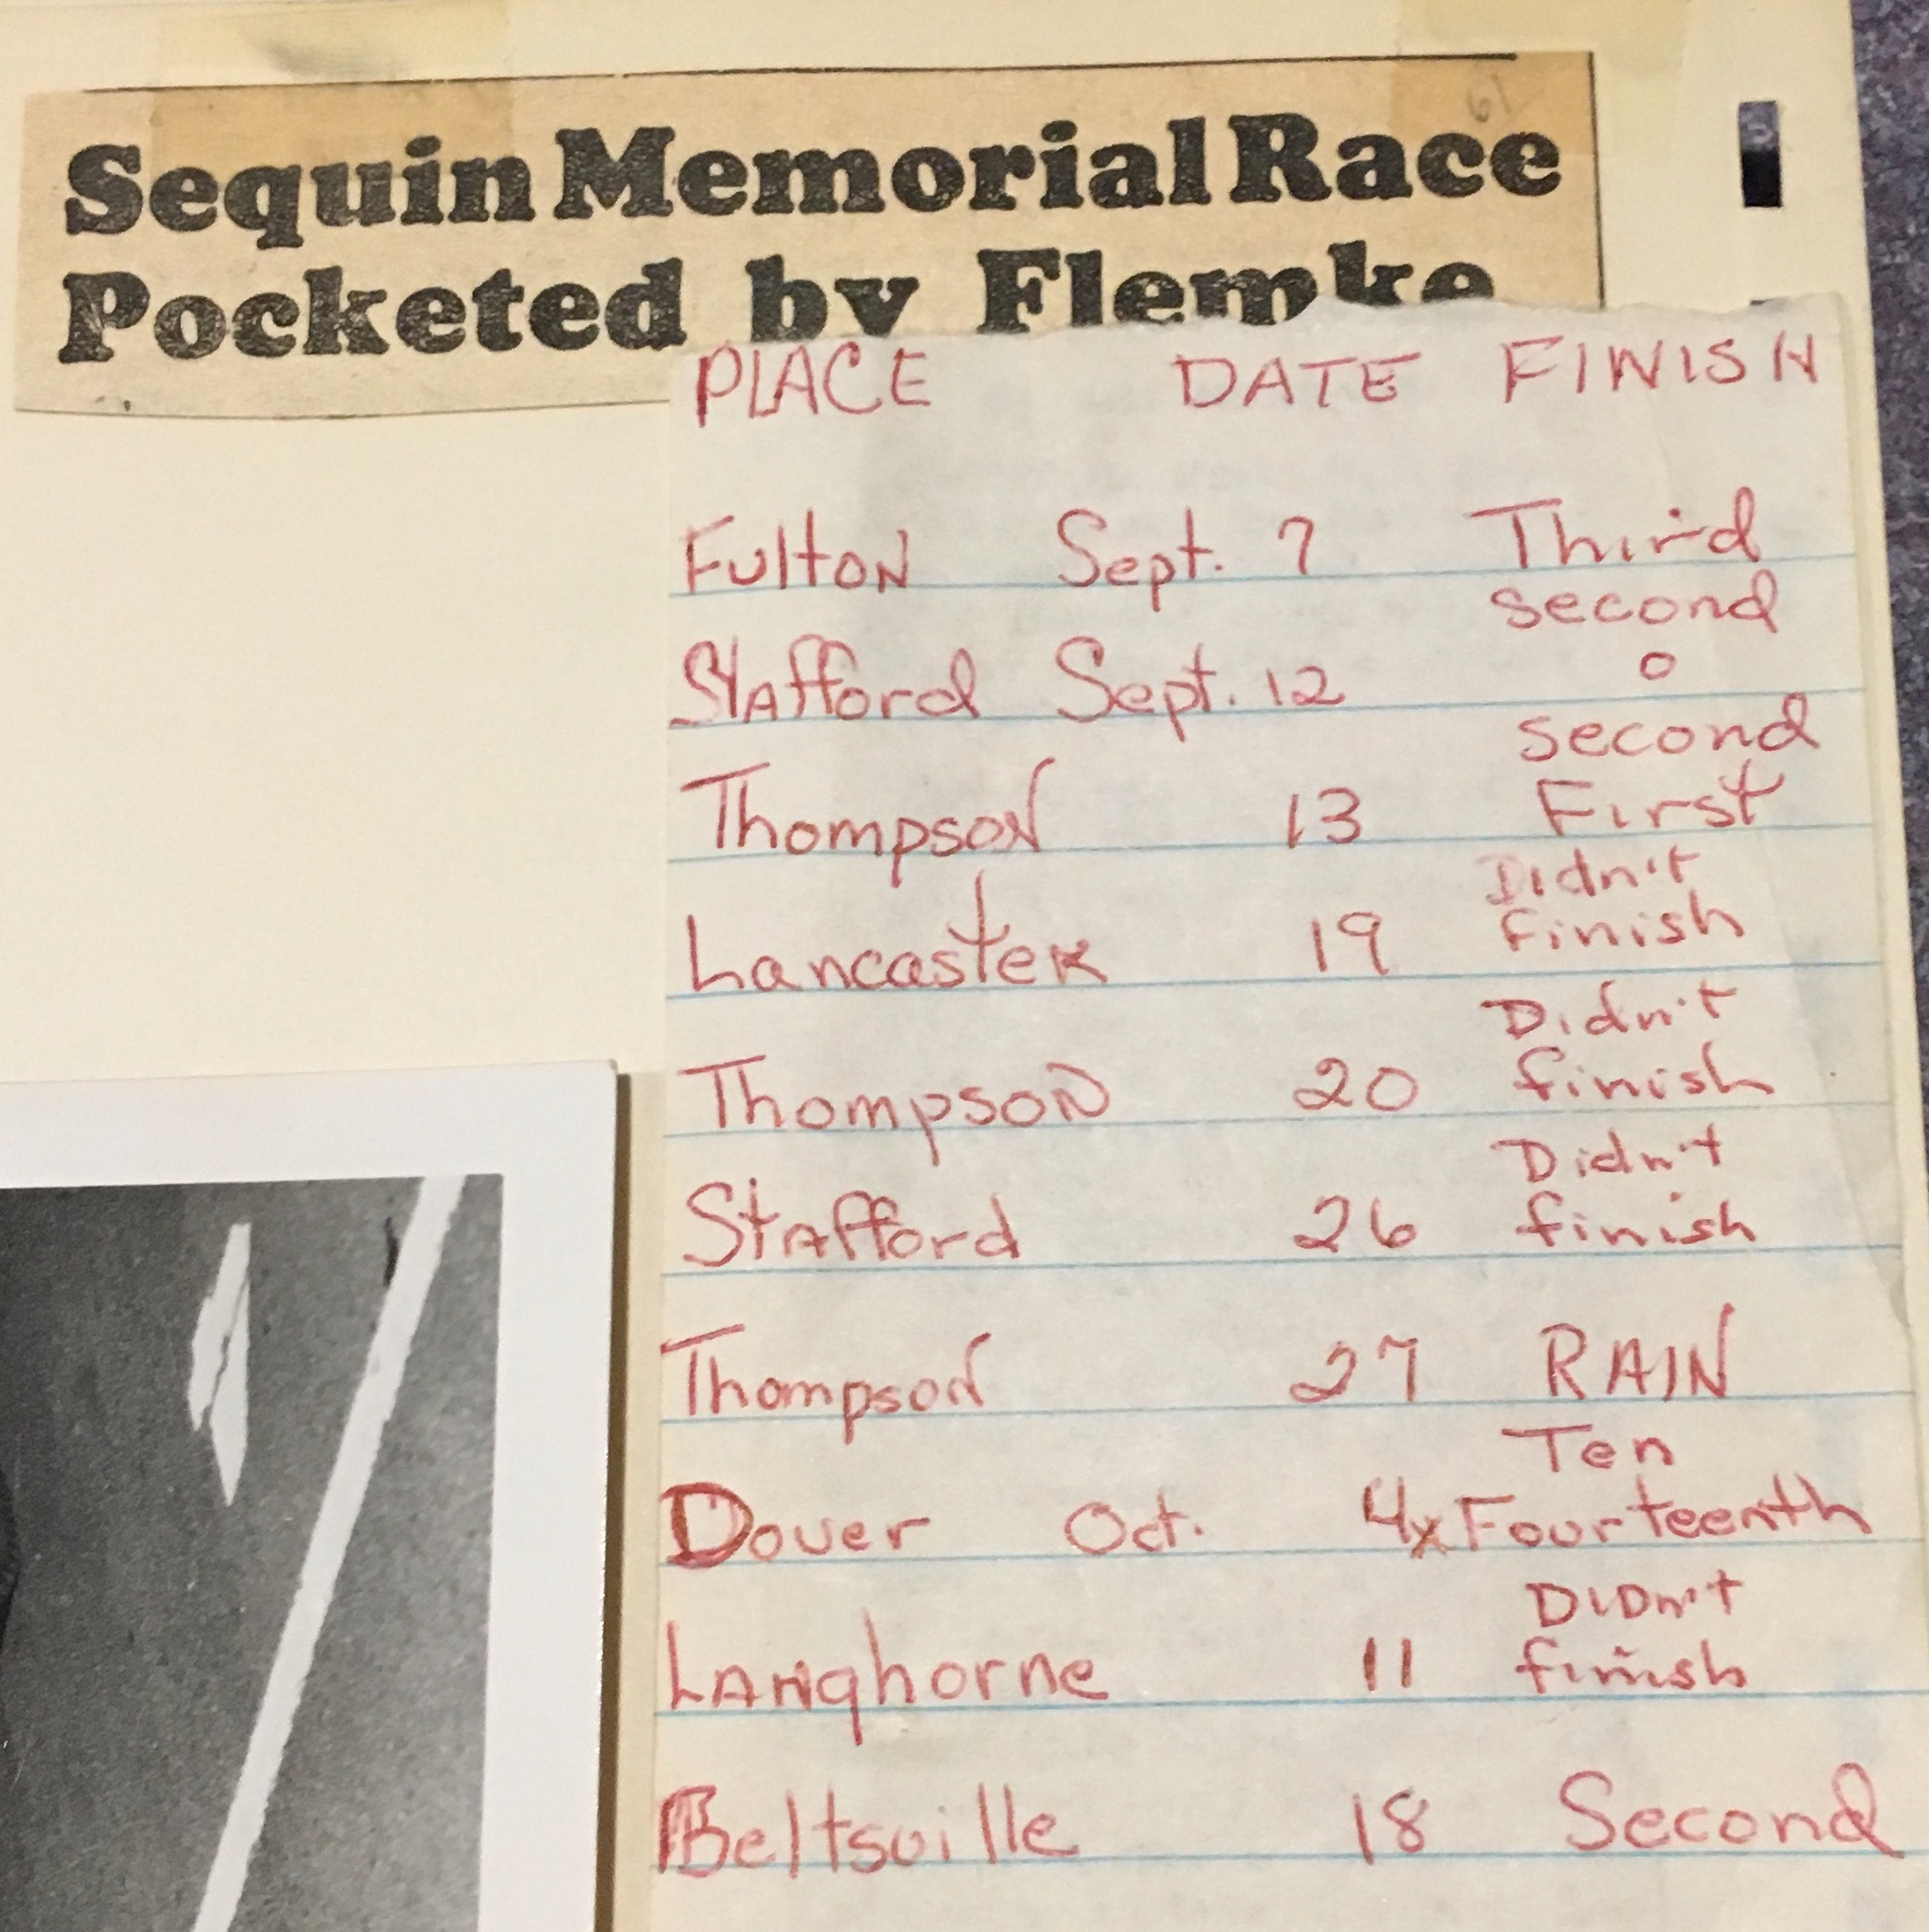 Sequin Memorial Race
Pocketed by Flemke
PLACE DATE FINISH
Fulton Sept. 7 Third
second
Stafford Sept. 12 0
second
Thompson 13 First
Didn't
Lancaster 19 finish
Didn't
Thompson 20 finish
Didn't
Stafford 26 finish
Thompson 27 RAIN
Ten
Dover Oct. 4x Fourteenth
DiDn't
Langhorne 11 finish
Beltsville 18 Second